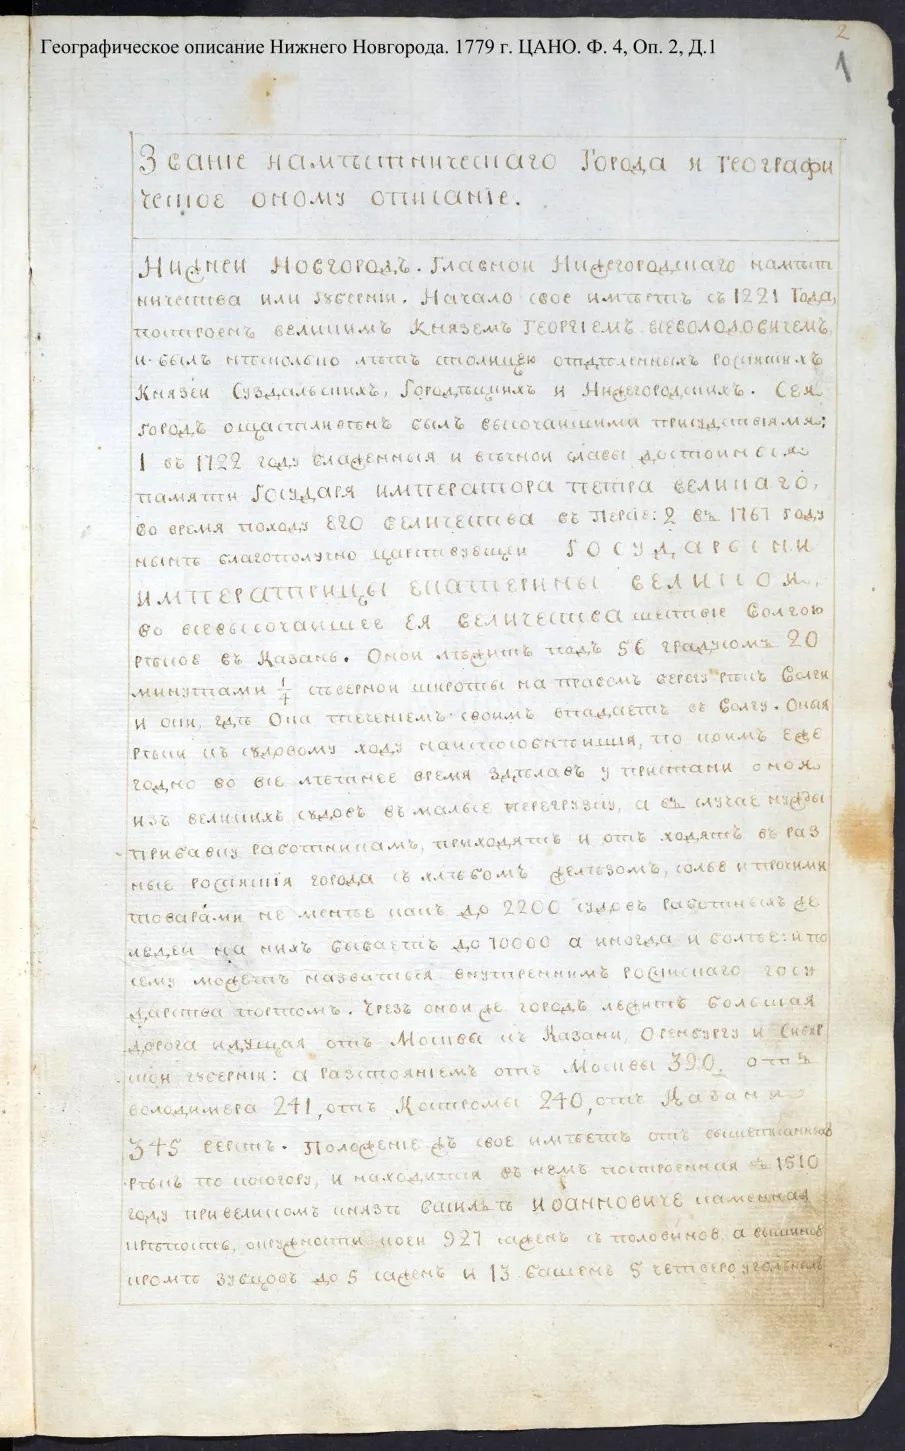 2
Географическое описание Нижнего Новгорода. 1779 г. ЦАНО. Ф. 4, Оп. 2, Д.1
1
Званіе намѣстническаго Города и географи
ческое оному описаніе.
Нижнеи Новгородъ. Главнои Нижегородскаго намѣст
ничества или губерніи. Начало свое имѣетъ съ 1221 Года,
построенъ великимъ Княземъ Георгіемъ всеволодовичемъ
и былъ нѣсколько лѣтъ столицею отдѣленныхъ росіискихъ
Князеи Суздальскихъ, Городѣцкихъ и Нижегородскихъ. Сея
городъ ощастливленъ былъ высочаишими присудствіями:
1 въ 1722 году блаженныя и вѣчнои славы достоиныя
памяти Государя императора петра великаго,
во время походу Его величества въ Персію: 2 въ 1767 году
нынѣ благополучно царствующеи Государыни
императрицы екатерины великоя,
во всевысочаишее ея величества шествіе Волгою
рѣкое въ Казань. Онои лѣжитъ подъ 56 градусомъ 20
минутами 1/4 сѣвернои широты на правомъ берегу рѣкъ Волги
и оки, гдѣ Она теченіемъ своимъ впадаетъ въ Волгу. Оныя
рѣки къ судовому ходу наиспособнѣишія, по коимъ еже
годно во все лѣтнее время здѣлавъ у пристани оноя
изъ великихъ судовъ въ малые перегрузку, а въ случае нужды
прибавку работникамъ, приходятъ и отъ ходятъ въ раз
ные росіискія города съ хлѣбомъ желѣзомъ, солью и прочими
товарами не менѣе какъ до 2200 судовъ работныхъ же
людеи на нихъ бываетъ до 70000 а иногда и болѣе: и по
сему можетъ назваться внутреннимъ росіискаго госу
дарства портомъ. Чрезъ онои же городъ лежитъ большая
дорога идущая отъ Москвы къ Казани, Оренбургу и Сибир
скои губерніи: а разстояніемъ отъ Москвы 390, отъ
володимера 241, отъ Костромы 240, отъ Казани
345 верстъ. Положеніе жъ свое имѣетъ отъ вышеписанныхъ
рѣкъ по косогору, и находится въ немъ построенная въ 1510
году при великомъ князѣ василье иоанновиче каменная
крѣпость, окружности коеи 927 саженъ съ половиною, а вышиною
кромѣ зубцовъ до 5 саженъ и 13 башенъ 5 четвероугольныхъ